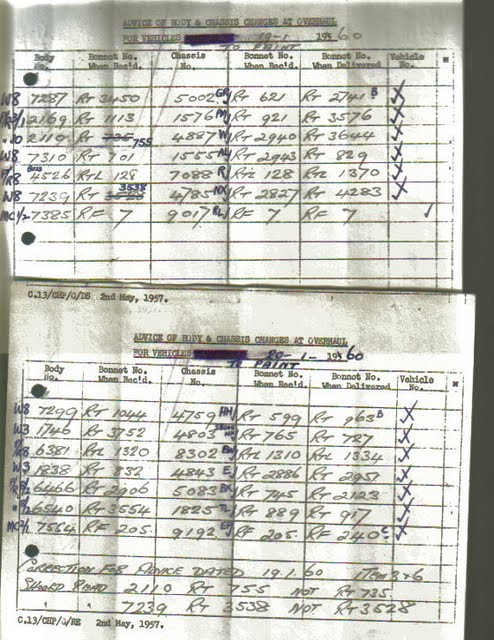 ADVICE OF BODY & CHASSIS CHANGES AT OVERHAUL
FOR VEHICLES 19-1 1960
TO PAINT
Body No. Bonnet No. When Rec'd. Chassis No. Bonnet No. Bonnet No. When Delivered Vehicle No. *
W8 7287 RT 3450 5002 RT 621 RT 2741 B
2169 RT 1113 1576 RT 921 RT 3576
2110 RT 735 755 4887 W RT 2940 RT 3644
W8 7310 RT 701 1555 RT 2943 RT 829
4526 RTL 128 7088 R RTL 128 RTL 1370
W8 7239 RT 3528 3538 4785 NX RT 2827 RT 4283
MC1/2 7385 RF 7 9017 RL RF 7 RF 7
C.13/CHP/G/DS 2nd May, 1957.
ADVICE OF BODY & CHASSIS CHANGES AT OVERHAUL
FOR VEHICLES 20-1- 1960
TO PAINT
Body No. Bonnet No. When Rec'd. Chassis No. Bonnet No. Bonnet No. When Delivered Vehicle No. *
W8 7299 RT 1044 4759 HH RT 599 RT 963 B
W3 1746 RT 3752 4803 RT 765 RT 727
6381 RTL 1320 8302 RTL 1310 RTL 1334
W3 1838 RT 832 4843 E RT 2886 RT 2951
6466 RT 2906 5083 RT 745 RT 2123
6540 RT 3554 1825 TL RT 889 RT 917
7554 RF 205 9192 RF 205 RF 240 C
CORRECTION FOR ADVICE DATED 19.1.60 ITEM 3 & 6
SHOULD READ 2110 RT 755 NOT RT 735
7239 RT 3538 NOT RT 3528
C.13/CHP/G/RE 2nd May, 1957.